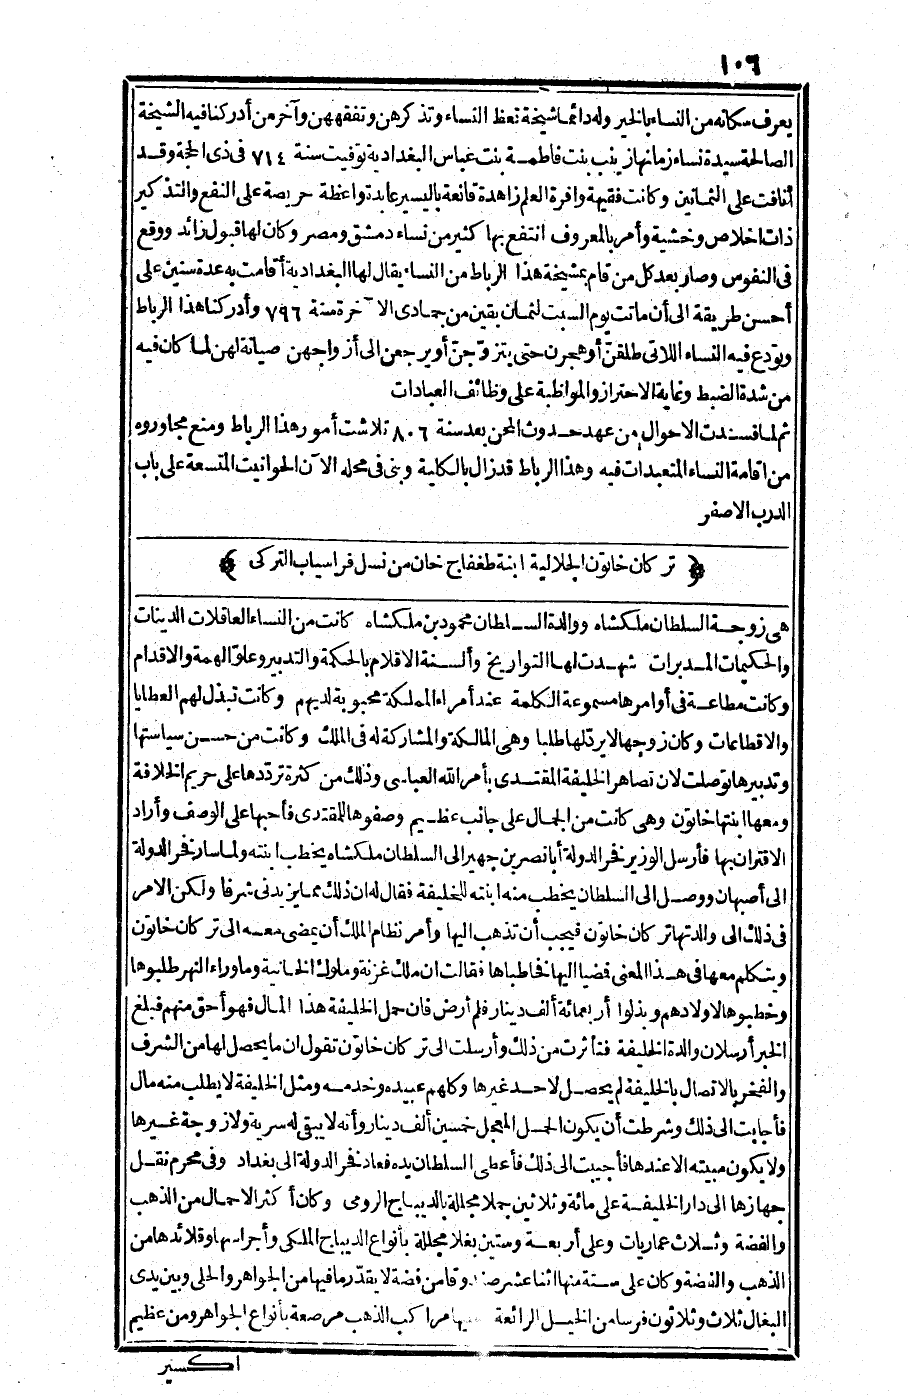 ١٠٦
يعرف سكانه من النساء بالخير وله دائما شيخة تعظ النساء وتذكرهن وتفقههن وآخر من أدركنا فيه الشيخة
الصالحة سيدة نساء زمانها زينب بنت فاطمة بنت عباس البغدادية توفيت سنة ٧١٤ فى ذى الحجة وقد
أنافت على الثمانين وكانت فقيهة وافرة العلم زاهدة قانعة باليسير عابدة واعظة حريصة على النفع والتذكير
ذات اخلاص وخشية وأمر بالمعروف انتفع بها كثير من نساء دمشق ومصر وكان لها قبول زائد ووقع
فى النفوس وصار بعد كل من قام بمشيخة هذا الرباط من النساء يقال لها البغدادية أقامت به عدة سنين على
أحسن طريقة الى أن ماتت يوم السبت لثمان بقين من جمادى الآخرة سنة ٧٩٦ وأدركنا هذا الرباط
وتودع فيه النساء اللاتى طلقن أو هجرن حتى يتزوجن أو يرجعن الى أزواجهن صيانة لهن لما كان فيه
من شدة الضبط وغاية الاحتراز والمواظبة على وظائف العبادات
ثم لما فسدت الاحوال من عهد حدوث المحن بعد سنة ٨٠٦ تلاشت أمور هذا الرباط ومنع مجاوروه
من اقامة النساء المتعبدات فيه وهذا الرباط قد زال بالكلية وبنى فى محله الآن الحوانيت المتسعة على باب
الدرب الاصفر
﴿ تركان خاتون الجلالية ابنة طغفاج خان من نسل فراسياب التركى ﴾
هى زوجة السلطان ملكشاه ووالدة السلطان محمود بن ملكشاه كانت من النساء العاقلات الدينات
والحكيمات المدبرات شهدت لها التواريخ وألسنة الاقلام بالحكمة والتدبير وعلو الهمة والاقدام
وكانت مطاعة فى أوامرها مسموعة الكلمة عند أمراء المملكة محبوبة لديهم وكانت تبذل لهم العطايا
والاقطاعات وكان زوجها لا يرد لها طلبا وهى المالكة والمشاركة له فى الملك وكانت من حسن سياستها
وتدبيرها توصلت لان تصاهر الخليفة المقتدى بأمر الله العباسى وذلك من كثرة ترددها على حريم الخلافة
ومعها ابنتها خاتون وهى كانت من الجمال على جانب عظيم وصفوها للمقتدى فأحبها على الوصف وأراد
الاقتران بها فأرسل الوزير فخر الدولة أبا نصر بن جهير الى السلطان ملكشاه يخطب ابنته ولما سار فخر الدولة
الى أصبهان ووصل الى السلطان يخطب منه ابنته للخليفة فقال له ان ذلك مما يزيدنى شرفا ولكن الامر
فى ذلك الى والدتها تركان خاتون فيجب أن تذهب اليها وأمر نظام الملك أن يمضى معه الى تركان خاتون
ويتكلم معها فى هذا المعنى فمضيا اليها فخاطباها فقالت ان ملك غزنة وملوك الخانية وما وراء النهر طلبوها
وخطبوها لاولادهم وبذلوا أربعمائة ألف دينار فلم أرض فان حمل الخليفة هذا المال فهو أحق منهم فبلغ
الخبر أرسلان والدة الخليفة فتأثرت من ذلك وأرسلت الى تركان خاتون تقول ان ما يحصل لها من الشرف
والفخر بالاتصال بالخليفة لم يحصل لاحد غيرها وكلهم عبيده وخدمه ومثل الخليفة لا يطلب منه مال
فأجابت الى ذلك وشرطت أن يكون الحمل المعجل خمسين ألف دينار وأنه لا يبقى له سرية ولا زوجة غيرها
ولا يكون مبيته الا عندها فأجيبت الى ذلك فأعطى السلطان يده فعاد فخر الدولة الى بغداد وفى محرم نقل
جهازها الى دار الخليفة على مائة وثلاثين جملا مجللة بالديباج الرومى وكان أكثر الاحمال من الذهب
والفضة وثلاث عماريات وعلى أربعة وستين بغلا مجللة بأنواع الديباج الملكى وأجراسها وقلائدها من
الذهب والفضة وكان على ستة منها اثنا عشر صندوقا من فضة لا يقدر ما فيها من الجواهر والحلى وبين يدى
البغال ثلاث وثلاثون فرسا من الخيل الرائعة عليها مراكب الذهب مرصعة بأنواع الجواهر ومن عظيم
اكسير